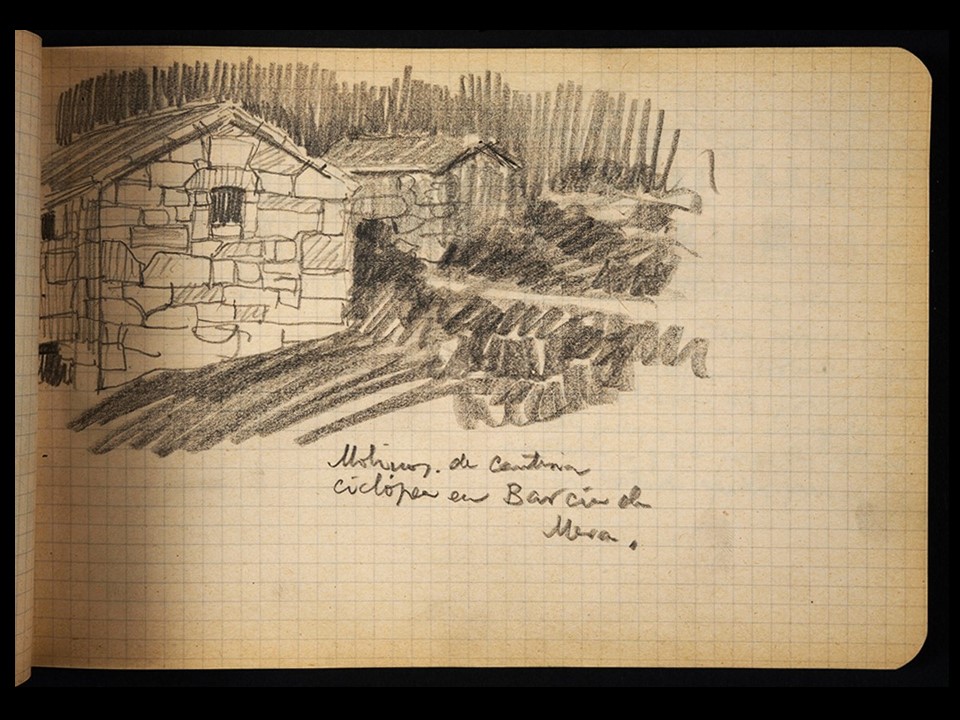 Molinos. de cantería
ciclópea en Barcia de
Mera.